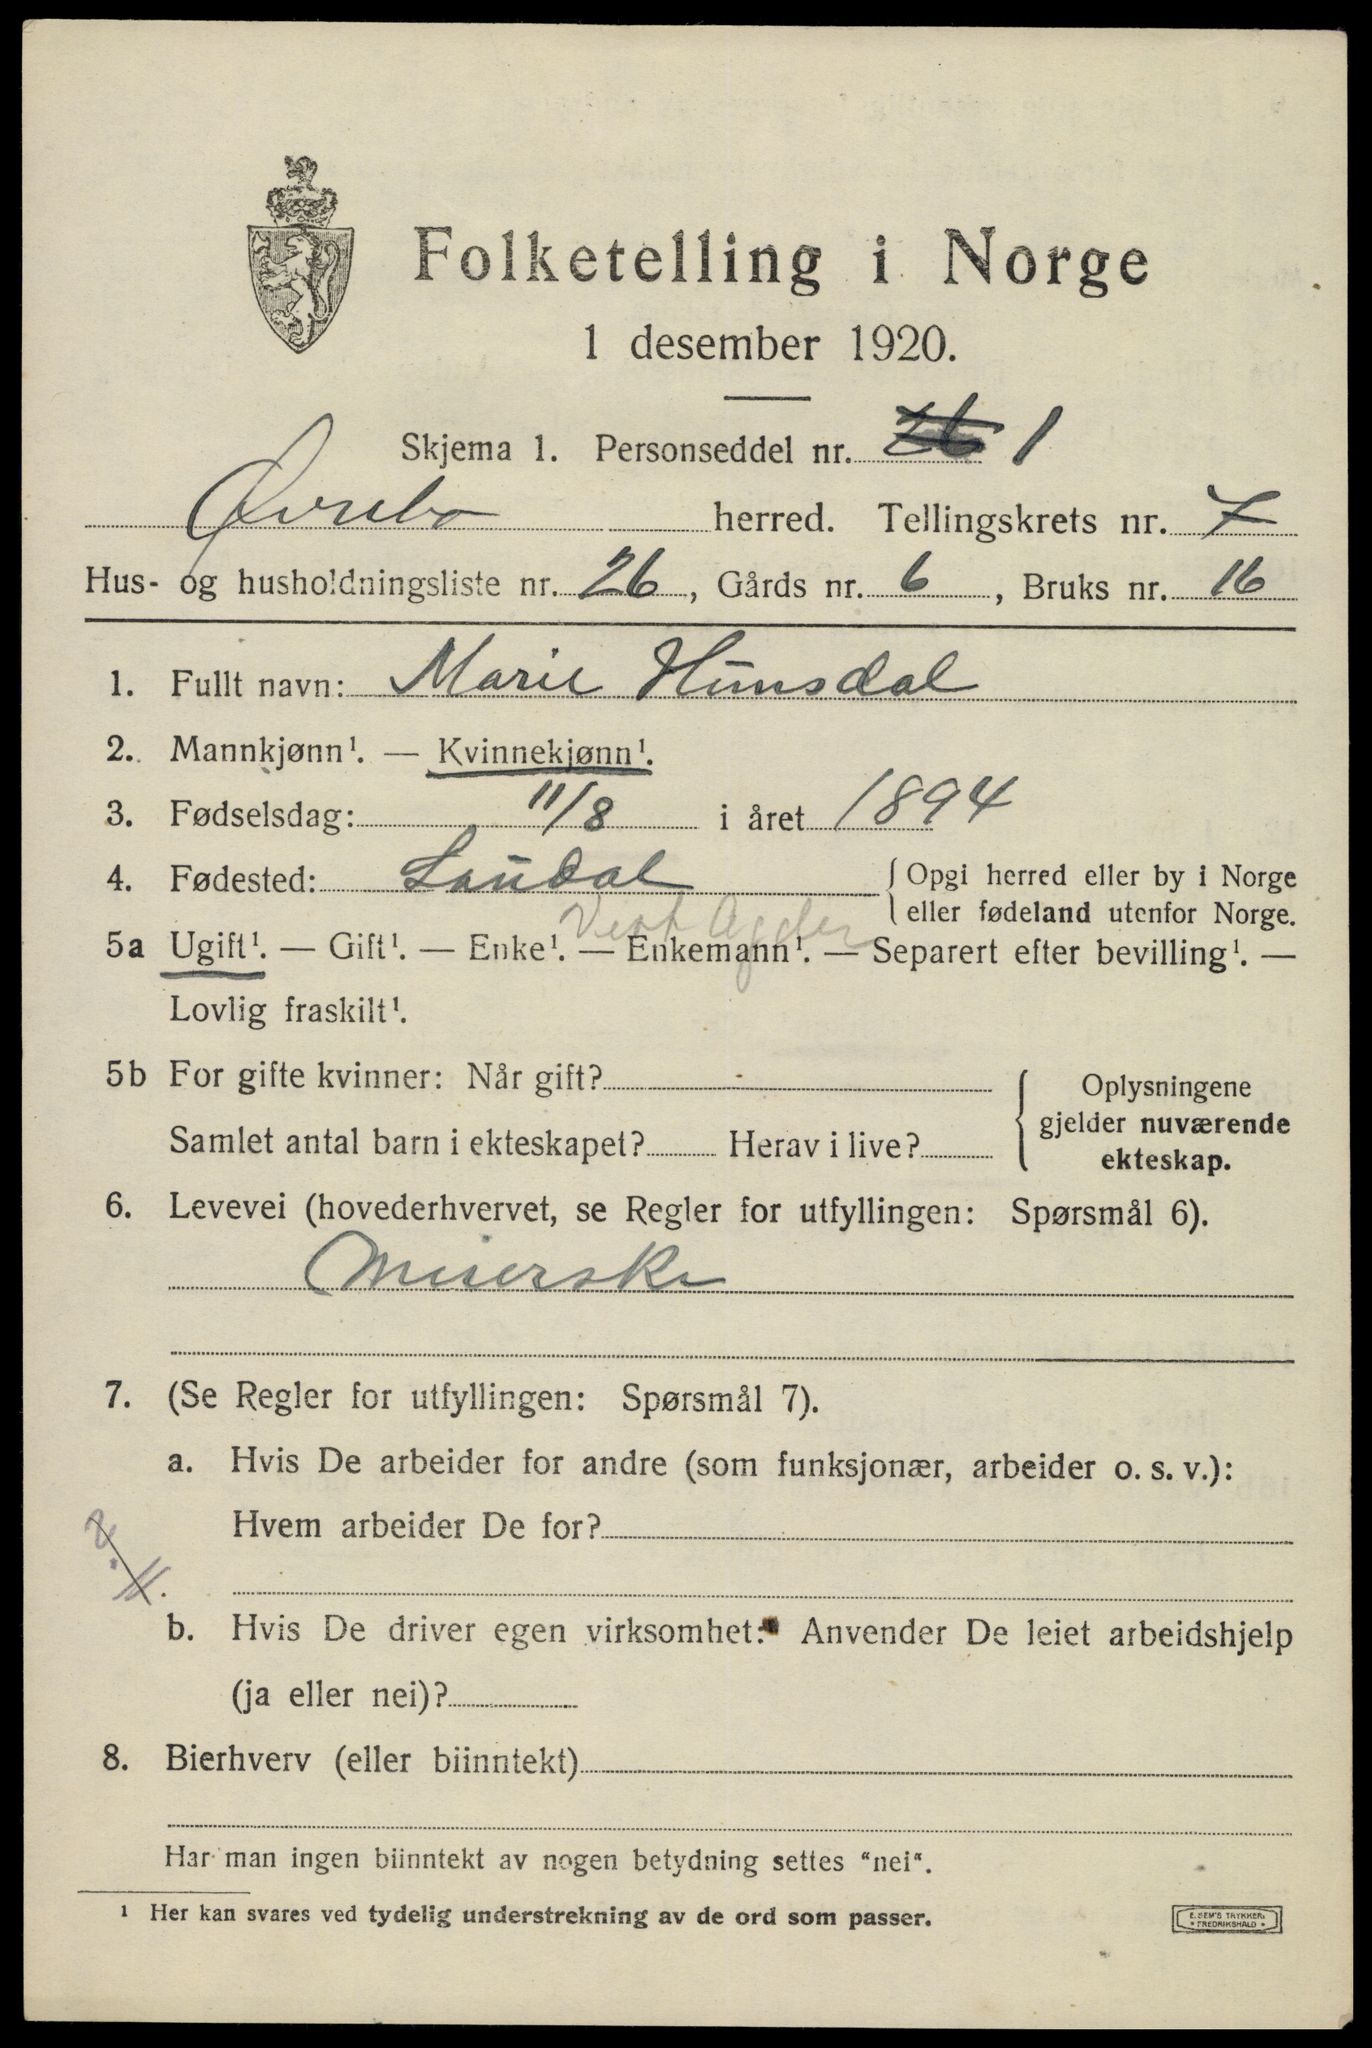 Folketelling i Norge
1 desember 1920.
Skjema 1. Personseddel nr. 26 1
Øvrebo herred. Tellingskrets nr. 7
Hus- og husholdningsliste nr. 26, Gårds nr. 6, Bruks nr. 16
1. Fullt navn: Marie Hunsdal
2. Mannkjønn¹. — Kvinnekjønn¹.
3. Fødselsdag: 11/8 i året 1894
4. Fødested: Laudal { Opgi herred eller by i Norge
eller fødeland utenfor Norge.
Vest Agder
5a Ugift¹. — Gift¹. — Enke¹. — Enkemann¹. — Separert efter bevilling¹. —
Lovlig fraskilt¹.
5b For gifte kvinner: Når gift?
Samlet antal barn i ekteskapet? Herav i live?
{ Oplysningene
gjelder nuværende
ekteskap.
6. Levevei (hovederhvervet, se Regler for utfyllingen: Spørsmål 6).
Meierske
7. (Se Regler for utfyllingen: Spørsmål 7).
a. Hvis De arbeider for andre (som funksjonær, arbeider o. s. v.):
Hvem arbeider De for?
b. Hvis De driver egen virksomhet: Anvender De leiet arbeidshjelp
(ja eller nei)?
8. Bierhverv (eller biinntekt)
Har man ingen biinntekt av nogen betydning settes "nei".
¹ Her kan svares ved tydelig understrekning av de ord som passer.
E. SEM'S TRYKKERI
* FREDRIKSHALD *